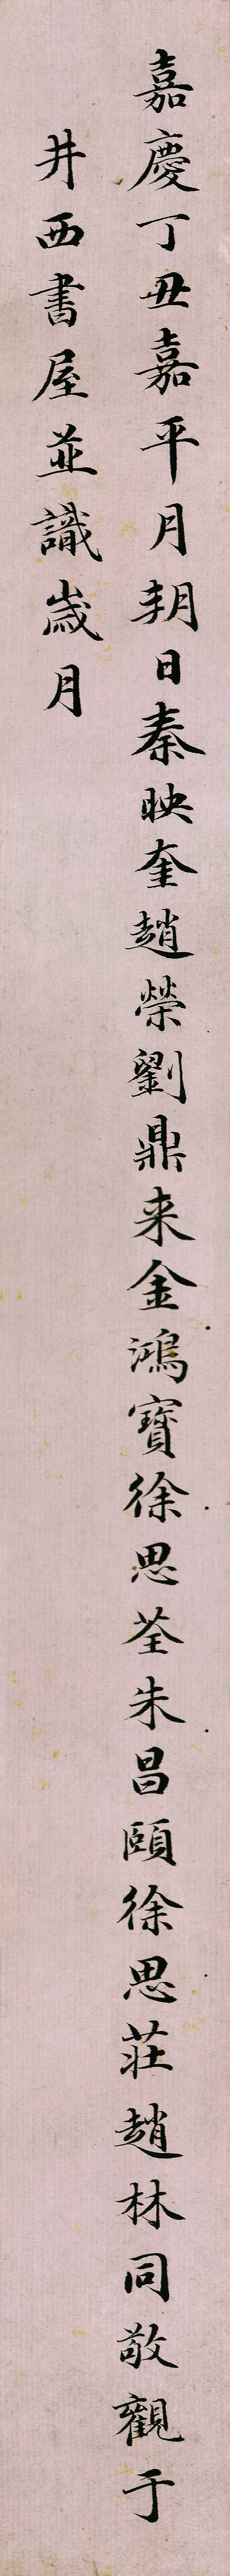 嘉慶丁丑嘉平月朔日秦映奎趙榮劉鼎来金鴻寶徐思荃朱昌頤徐思莊趙林同敬觀于
井西書屋並識歲月